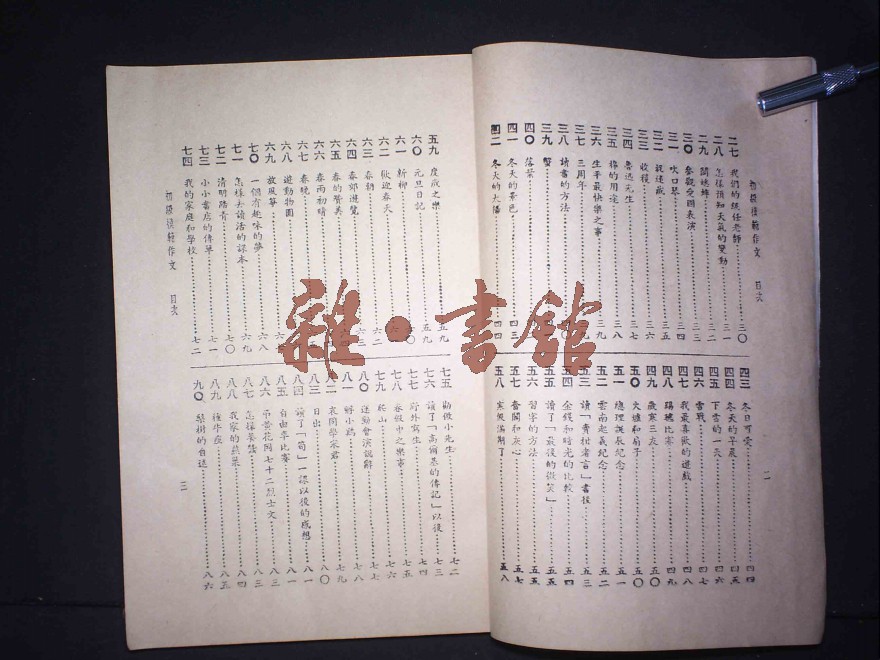 初級模範作文 目次
二七 我們的級任老師 三〇
二八 怎樣預知天氣的變動 三一
二九 鬭蟋蟀 三二
三〇 參觀受國表演 三三
三一 吹口琴 三四
三二 親遠戚
三三 收穫 三五
三四 魯迅先生 三六
三五 梅的用途 三八
三六 生平最快樂之事 三九
三七 三周年
三八 讀書的方法
三九 蟹
四〇 落葉
四一 冬天的景色 四三
四二 冬天的太陽 四四
四三 冬日可愛 四四
四四 冬天的早晨 四五
四五 下雪的一天 四六
四六 雪戰 四七
四七 我最喜歡的遊戲 四八
四八 踢毽比賽 四九
四九 歲寒三友 五〇
五〇 火爐和扇子
五一 總理誕辰紀念 五一
五二 雲南起義紀念 五二
五三 讀「賣柑者言」書後 五三
五四 金錢和時光的比較 五四
五五 讀了「最後的微笑」 五五
五六 習字的方法 五五
五七 奮鬭和灰心 五七
五八 寒假滿期了 五八
二
五九 度歲之樂 五九
六〇 元旦日記 五九
六一 新柳 六〇
六二 歡迎春天 六一
六三 春朝 六二
六四 春郊遊覽 六三
六五 春的贊美
六六 春雨初晴
六七 春晚
六八 遊動物園
六九 放風箏 六八
七〇 一個有趣味的夢 六九
七一 怎樣去讀活的課本 七〇
七二 清明踏青 七〇
七三 小小當店的傳單 七一
七四 我的家庭和學校 七二
七五 勛儆小先生 七二
七六 讀了「高爾基的傳記」以後 七三
七七 野外寫生 七四
七八 春假中之樂事 七五
七九 爬山 七七
八〇 運動會演說辭 七七
八一 孵小鷄 七八
八二 哀同學宋君 七九
八三 日出 八〇
八四 讀了「筍」一課以後的感想 八一
八五 自由車比賽 八一
八六 弔黃花岡七十二烈士文 八三
八七 怎樣養蠶 八三
八八 我家的蔬菜 八四
八九 種牛痘 八五
九〇 梨樹的自述 八六
初級模範作文 目次
三
雜·書館